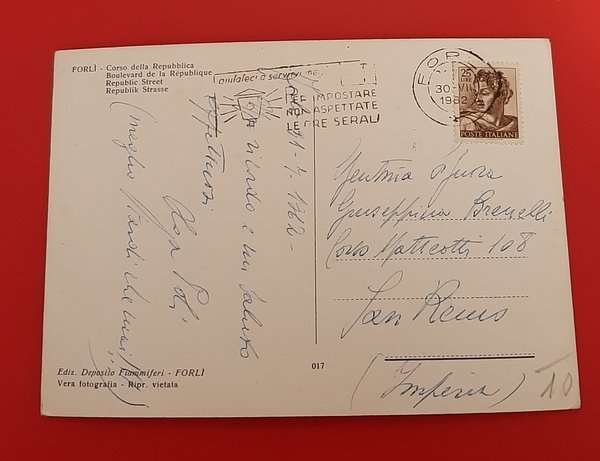 FORLÌ - Corso della Repubblica
Boulevard de la République
Republic Street
Republik Strasse
aiutateci a servirvi me
PER IMPOSTARE
NON ASPETTATE
LE ORE SERALI
FOR
30 VII
1962
25
LIRE
POSTE ITALIANE
1-7-1962-
ricordo e un saluto
affettuosi
(meglio tardi che mai!)
Gentma Signora
Giuseppina Brenelli
Corso Matteotti 108
San Remo
(Imperia)
10
017
Ediz. Deposito Fiammiferi - FORLÌ
Vera fotografia - Ripr. vietata